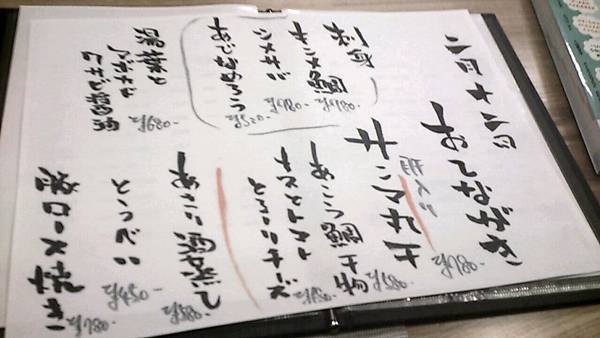 二月十二日
おてながき
サンマ丸干
¥580-
刺身
キンメ鯛
¥980-
シメサバ
¥780-
あじなめろう
¥520-
湯葉と
アボカド
ワサビ醤油
¥680-
あこう鯛干物
ナスとトマト
とろーりチーズ
あさり酒蒸し
¥580-
¥450-
豚ロース
焼き
¥780-